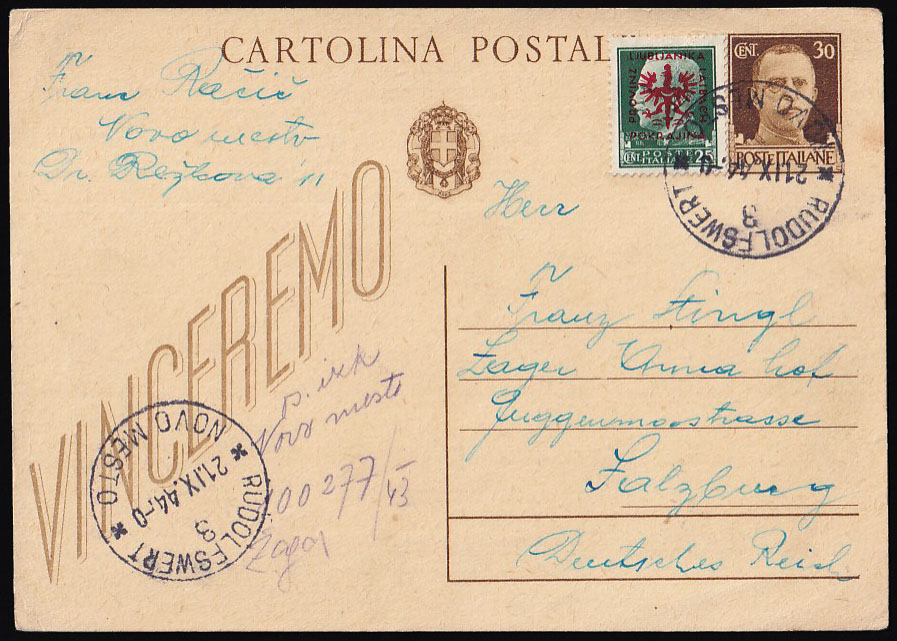 CARTOLINA POSTAL
Franc Račić
Novo mesto
Dr. Režkova 11
PROVINZ LAIBACH
LJUBLJANSKA
POKRAJINA
CENT. POSTE ITALIANE 25
CENT. 30
POSTE ITALIANE
NOVO MESTO
21.IX.44.-0
* RUDOLFSWERT *
3
Herr
Franz Stingl
Lager Anna hof
Guggenmoosstrasse
Salzburg
Deutsches Reich
VINCEREMO
Novo mesto
00277/43
NOVO MESTO
21.IX.44.-0
* RUDOLFSWERT *
3